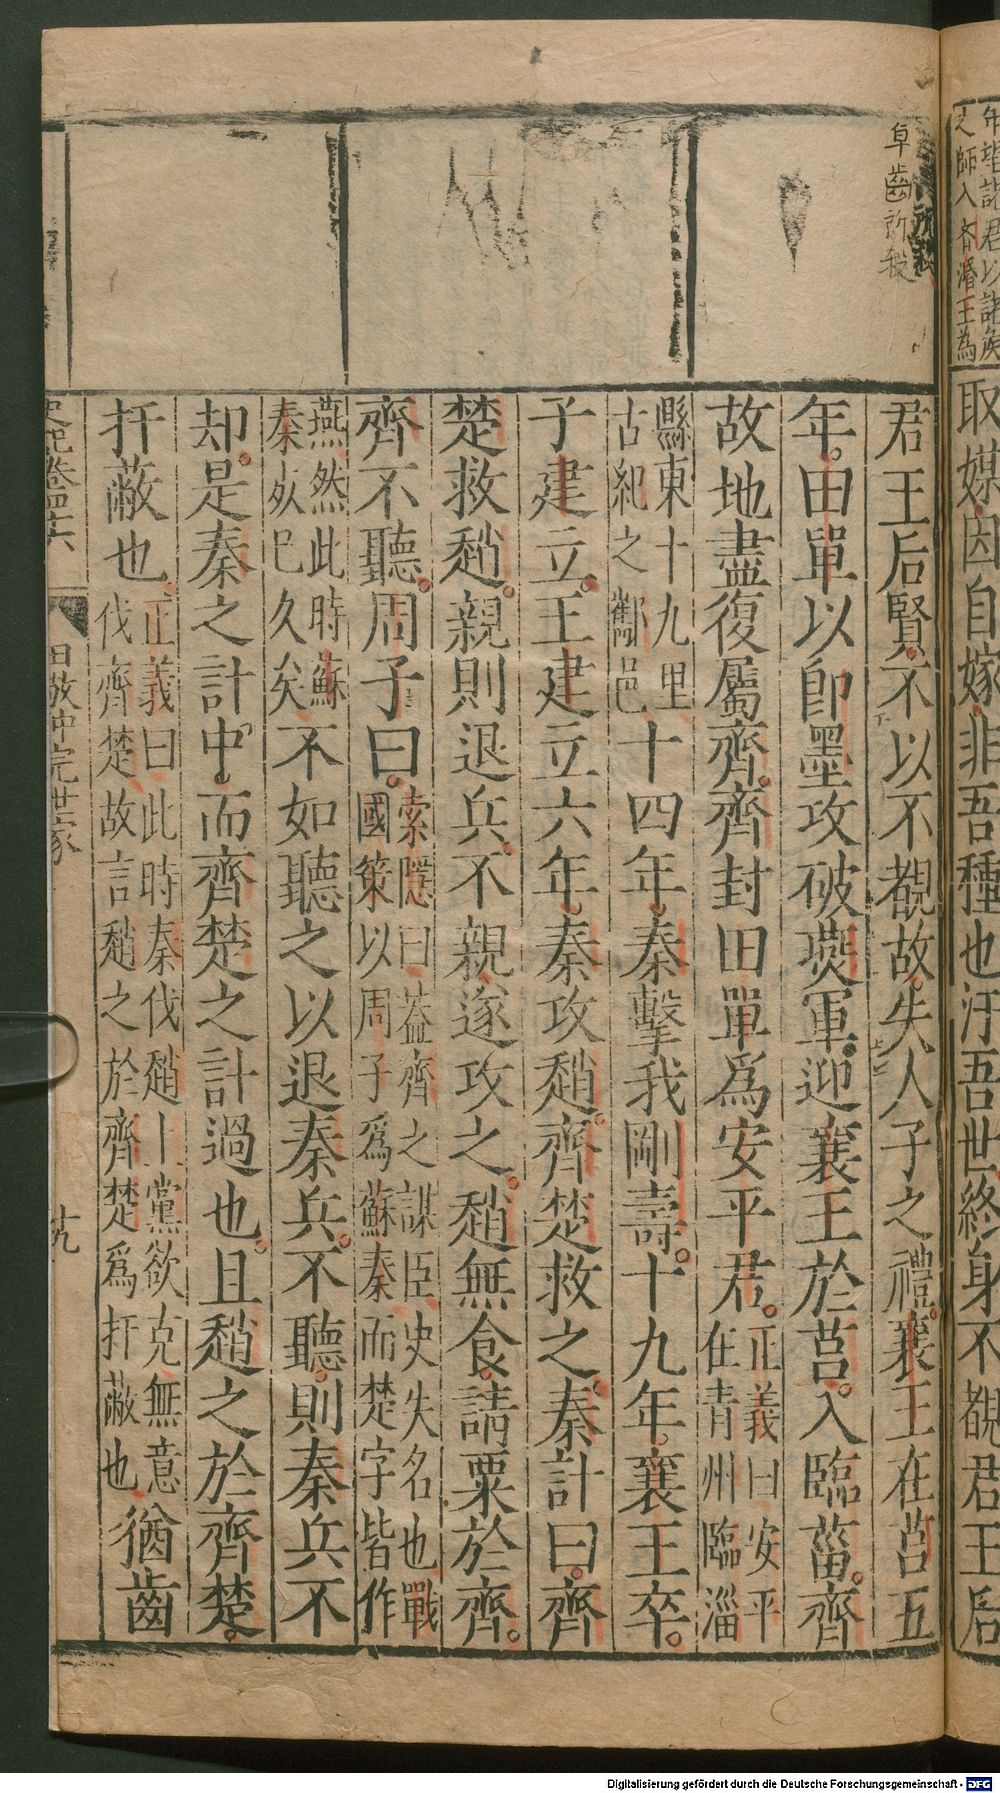 年望諸君以諸侯
之師入齊湣王為
取媒因自嫁非吾種也汙吾世終身不覩君王后
卓齒所殺
君王后賢不以不覩故失人子之禮襄王在莒五
年田單以卽墨攻破燕軍迎襄王於莒入臨菑齊
故地盡復屬齊齊封田單爲安平君
正義曰安平
在青州臨淄
縣東十九里
古紀之酅邑
十四年秦擊我剛壽十九年襄王卒
子建立王建立六年秦攻趙齊楚救之秦計曰齊
楚救趙親則退兵不親遂攻之趙無食請粟於齊
齊不聽周子曰
索隱曰蓋齊之謀臣史失名也戰
國策以周子爲蘇秦而楚字皆作
燕然此時蘇
秦死已久矣
不如聽之以退秦兵不聽則秦兵不
却是秦之計中而齊楚之計過也且趙之於齊楚
扞蔽也
正義曰此時秦伐趙上黨欲克無意
伐齊楚故言趙之於齊楚爲扞蔽也
猶齒
史記卷四十六
田敬仲完世家
十九
Digitalisierung gefördert durch die Deutsche Forschungsgemeinschaft - DFG